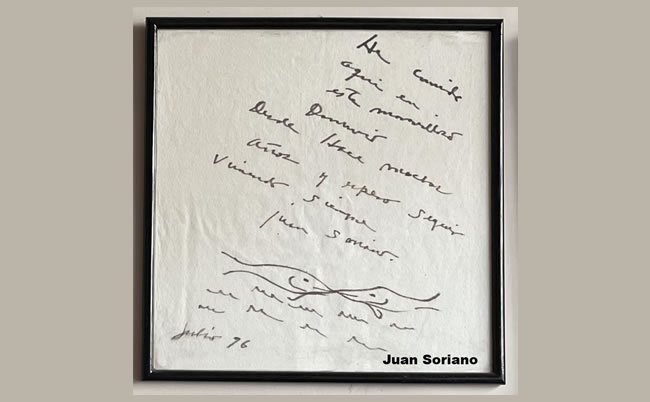 He comido
aquí en
este maravilloso
Danubio
Desde hace muchos
años y espero seguir
viniendo siempre
Juan Soriano.
Julio 96
Juan Soriano